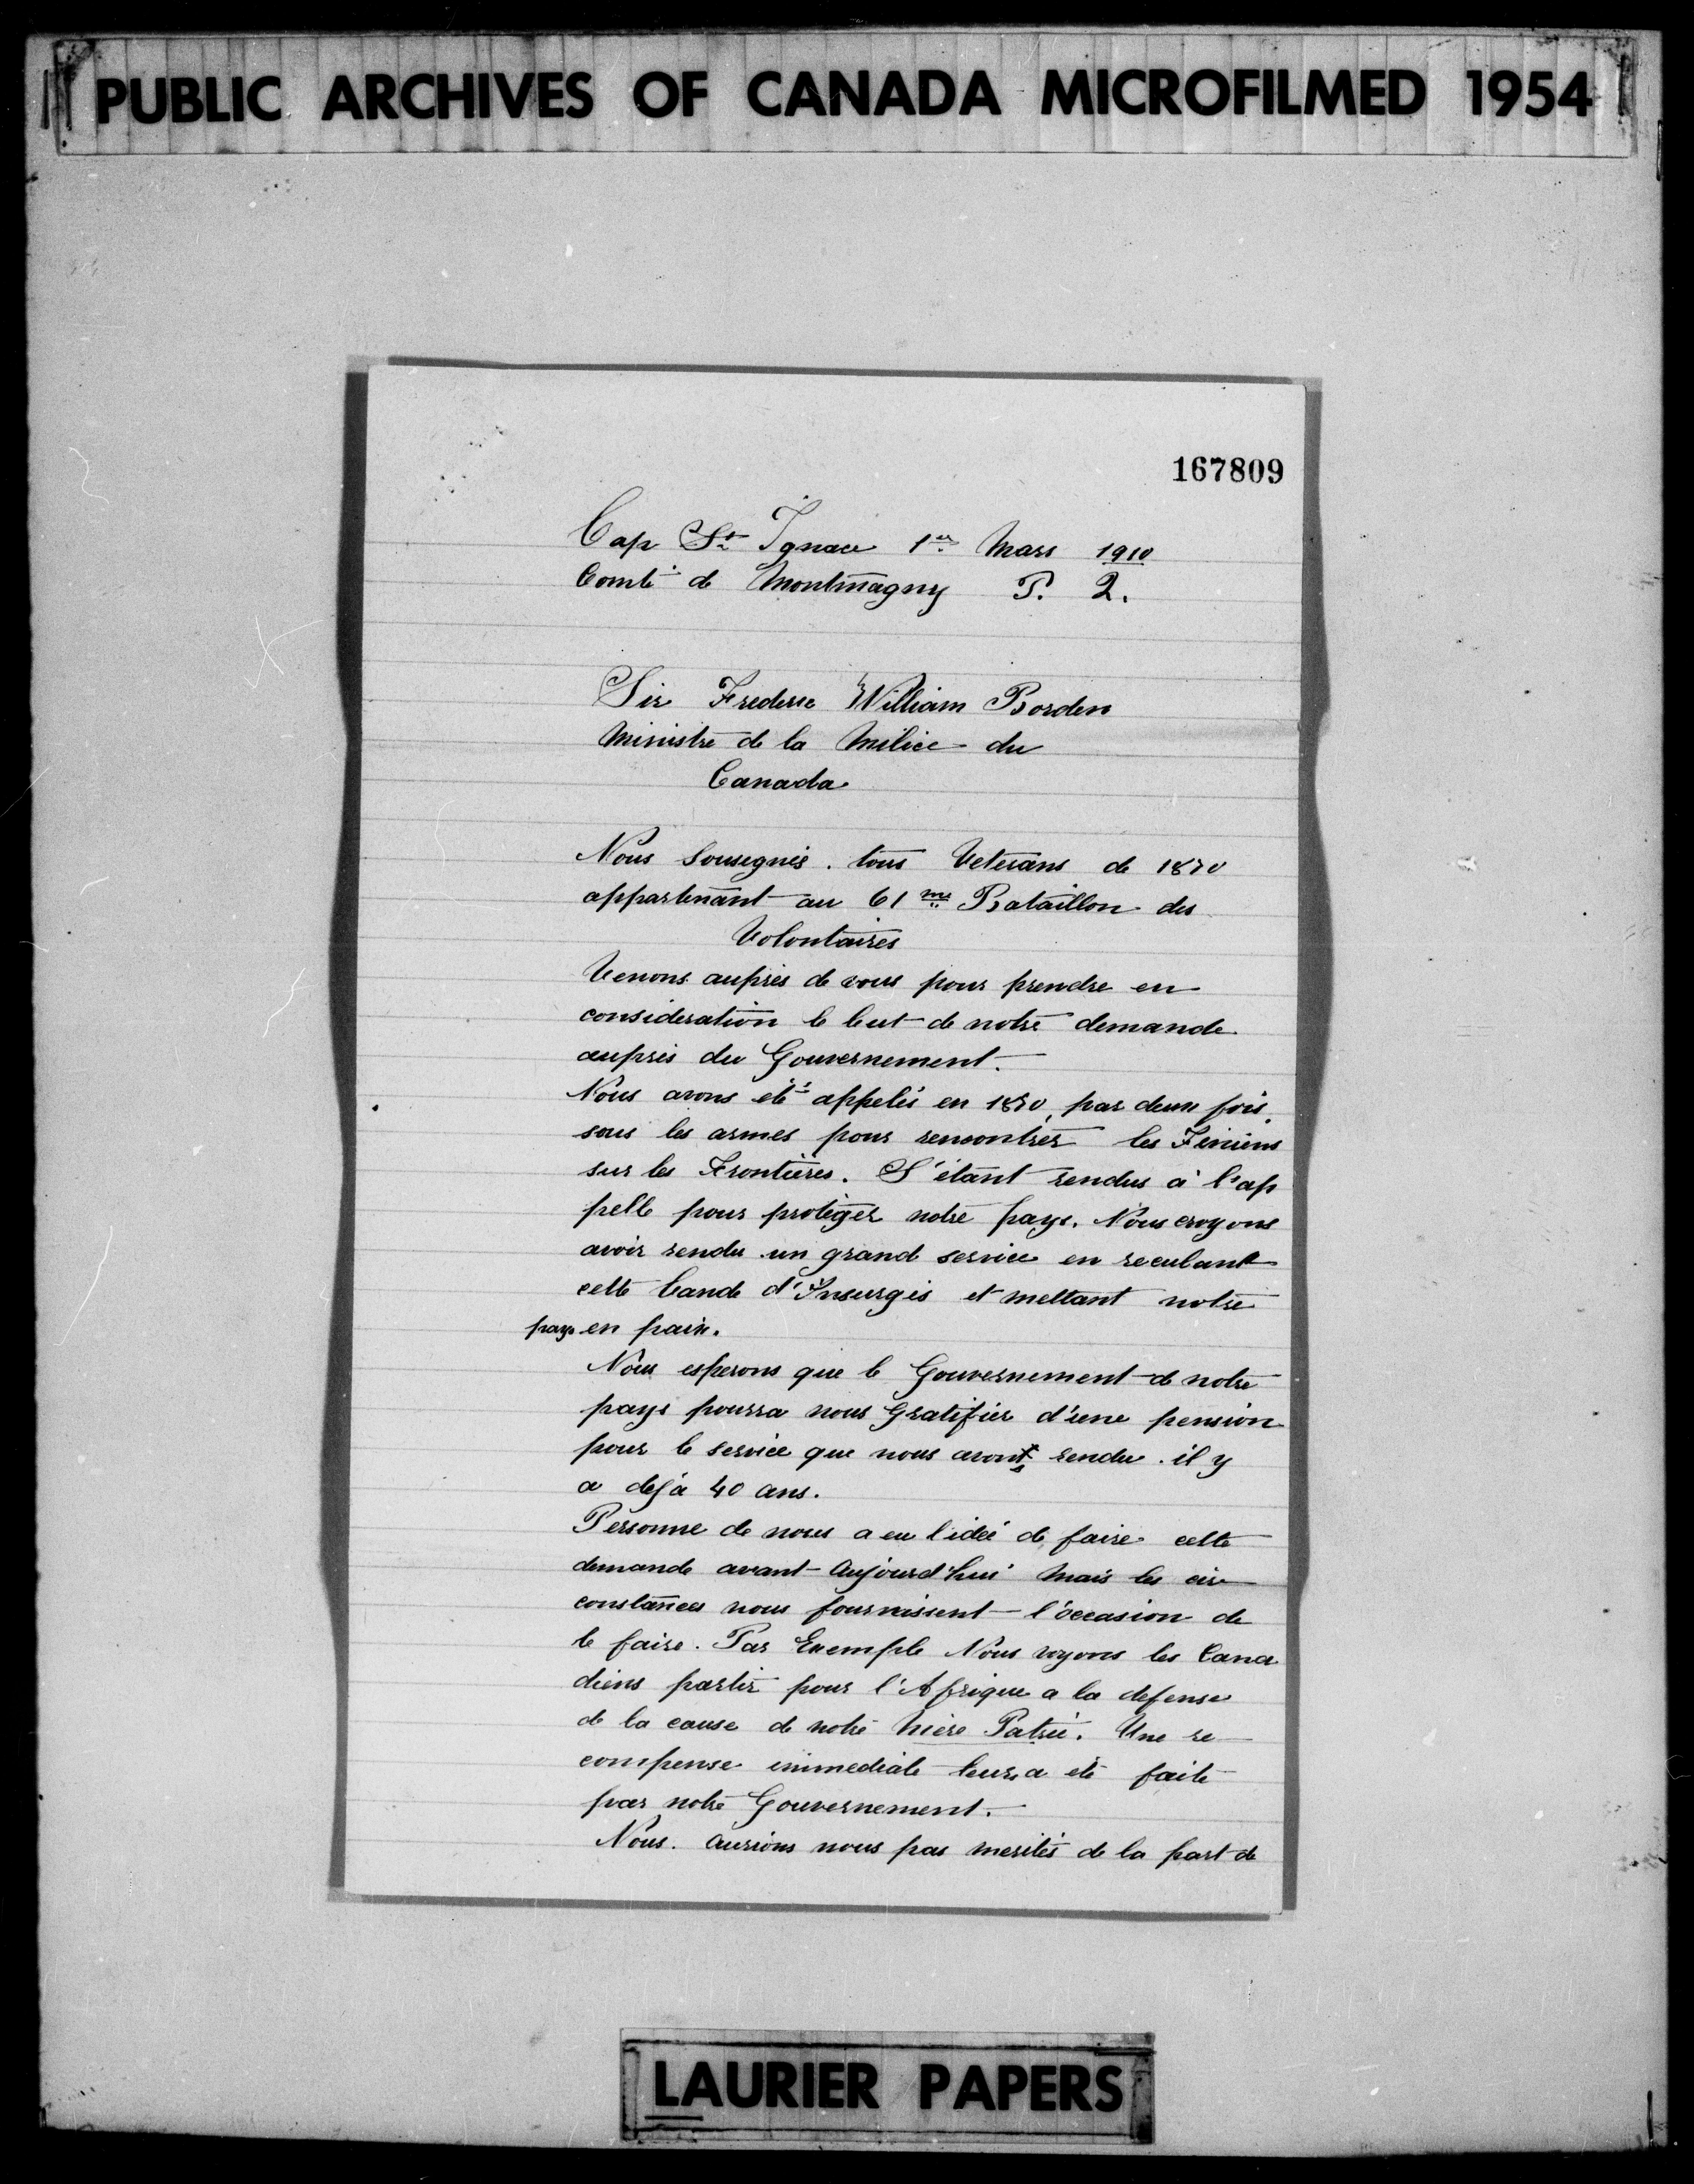 PUBLIC ARCHIVES OF CANADA MICROFILMED 1954
167809
Cap St Ignace 1er Mars 1910
Comté de Montmagny P. Q.
Sir Frederic William Borden
Ministre de la Milice du
Canada
Nous Sousegnés. tous Veterans de 1870
appartenant au 61 me Bataillon des
Volontaires
Venons auprès de vous pour prendre en
consideration le but de notre demande
auprès du Gouvernement.
Nous avons été appelés en 1870, par deux fois
sous les armes pour rencontrer les Féniens
sur les Frontières. S'étant rendus à l'ap
pelle pour protéger notre pays. Nous croyons
avoir rendu un grand service en reculant
cette bande d'Insurgés et mettant notre
pays en paix.
Nous esperons que le Gouvernement de notre
pays pourra nous Gratifier d'une pension
pour le service que nous avons rendu. il y
a déjà 40 ans.
Personne de nous a eu l'idée de faire cette
demande avant Aujourd'hui Mais les cir
constances nous fournissent l'occasion de
le faire. Par Exemple Nous voyons les Cana
diens partir pour l'Afrique a la defense
de la cause de notre Mère Patrie. Une re
compense immediate leurs a été faite
par notre Gouvernement.
Nous. Aurions nous pas merités de la part de
LAURIER PAPERS